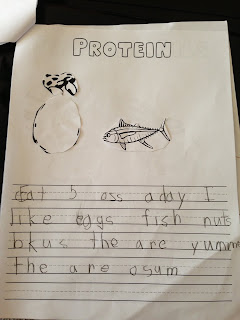 PROTEIN
Eat 5 oss a day I
like eggs fish nuts
bkus the are yumm
the are osum